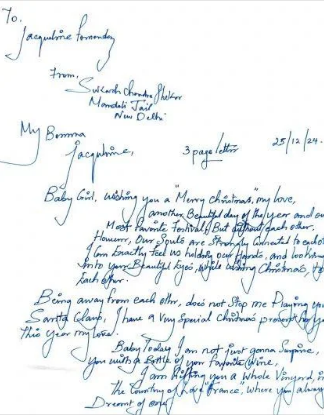 To,
Jacqueline Fernandez
From,
Sukash Chandra Shekar
Mandoli Jail
New Delhi
My Bomma
Jacqueline, 3 page letter 25/12/24.
Baby Girl, wishing you a "Merry Christmas", my love,
another Beautiful day of the year and our
Most Favorite festival, But without each other.
However, Our Souls are Strongly Connected to each other
I Can Exactly feel us holding our Hands, and looking
into your Beautiful Eyes, while wishing Christmas, to
Each other.
Being away from each other, does not stop me Playing your
Santa Claus, I have a Very Special Christmas present for you
this year my love.
Baby Today I am not just gonna Surprise,
you with a Bottle of your favorite Wine,
I am Gifting you a Whole Vineyard, in
the Country of Love "France", where you always
Dreamt of